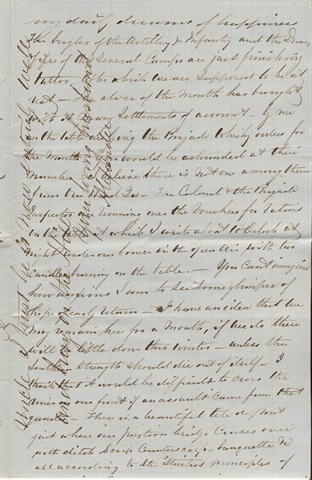 my day dreams of happiness
The bugles of the Artillery & Infantry and the Drums
& fifes of the General Camps are just finishing
Tattoo at which we are supposed to be at
rest - The close of the Month has brought
with it many Settlements of account - by me
on the table are lying the Brigade Whisky orders for
the Month would be astounded at their
Number there is not one among them
from Head Qrs - The Colonel & the Brigade
Inspector are running over the Vouchers for rations
which I write about
night under our bower in the open air with two
candles burning on the table. - You Can't imagine
how anxious I am to see some glimpse of
hope early return - I have an idea that we
may remain here for a month, if we do there
will be little done this winter - unless the
South strength should die out of itself - I
think that it would be difficult to cross the
river on our front if an assault came from that
quarter - There is a beautiful tête de pont
just where our pontoon bridge Crosses over
with ditch Scarp Counterscarp banquette &c
all according to the Strictest principles of
while I must be in now until well
and happy
Your loving husband
Alexander